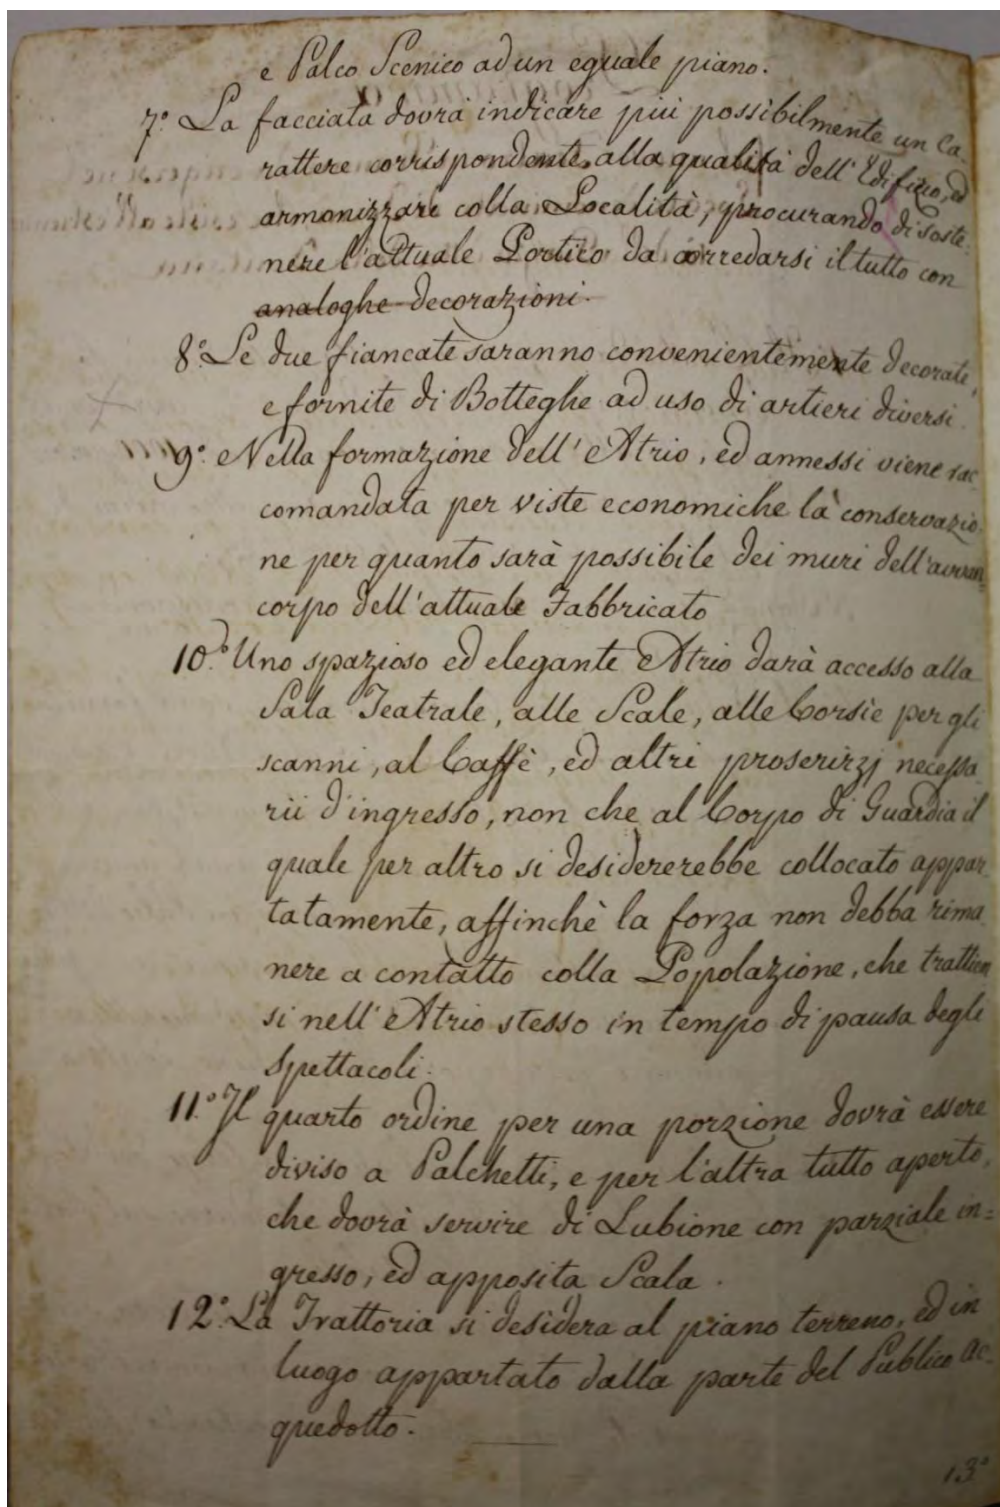 e Palco Scenico ad un eguale piano.
7.° La facciata dovrà indicare più possibilmente un Ca-
rattere corrispondente alla qualità dell' Edifizio, ed
armonizzare colla Località, procurando di soste-
nere l'attuale Portico da corredarsi il tutto con
analoghe decorazioni.
8.° Le due fiancate saranno convenientemente decorate,
e fornite di Botteghe ad uso di artieri diversi.
9.° Nella formazione dell' Atrio, ed annessi viene rac-
comandata per viste economiche la conservazio-
ne per quanto sarà possibile dei muri dell'avvan-
corpo dell'attuale Fabbricato
10.° Uno spazioso ed elegante Atrio darà accesso alla
Sala Teatrale, alle Scale, alle Corsie per gli
scanni, al Caffè, ed altri proservizj necessa-
rii d'ingresso, non che al Corpo di Guardia il
quale per altro si desidererebbe collocato appar-
tatamente, affinchè la forza non debba rima-
nere a contatto colla Popolazione, che trattien-
si nell' Atrio stesso in tempo di pausa degli
Spettacoli.
11.° Il quarto ordine per una porzione dovrà essere
diviso a Palchetti, e per l'altra tutto aperto,
che dovrà servire di Lubione con parziale in=
gresso, ed apposita Scala.
12.° La Trattoria si desidera al piano terreno, ed in
luogo appartato dalla parte del Publico Ac-
quedotto.
13.°